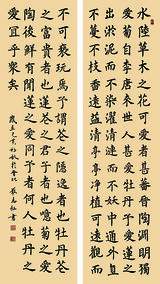 水陸草木之花可愛者甚蕃晉陶淵明獨
愛菊自李唐来世人甚愛牡丹予獨愛蓮之
出淤泥而不染濯清漣而不妖中通外直
不蔓不枝香遠益清亭亭淨植可遠觀而
不可褻玩焉予謂菊花之隱逸者也牡丹
花之富貴者也蓮花之君子者也噫菊之愛
陶後鮮有聞蓮之愛同予者何人牡丹之
愛宜乎衆矣